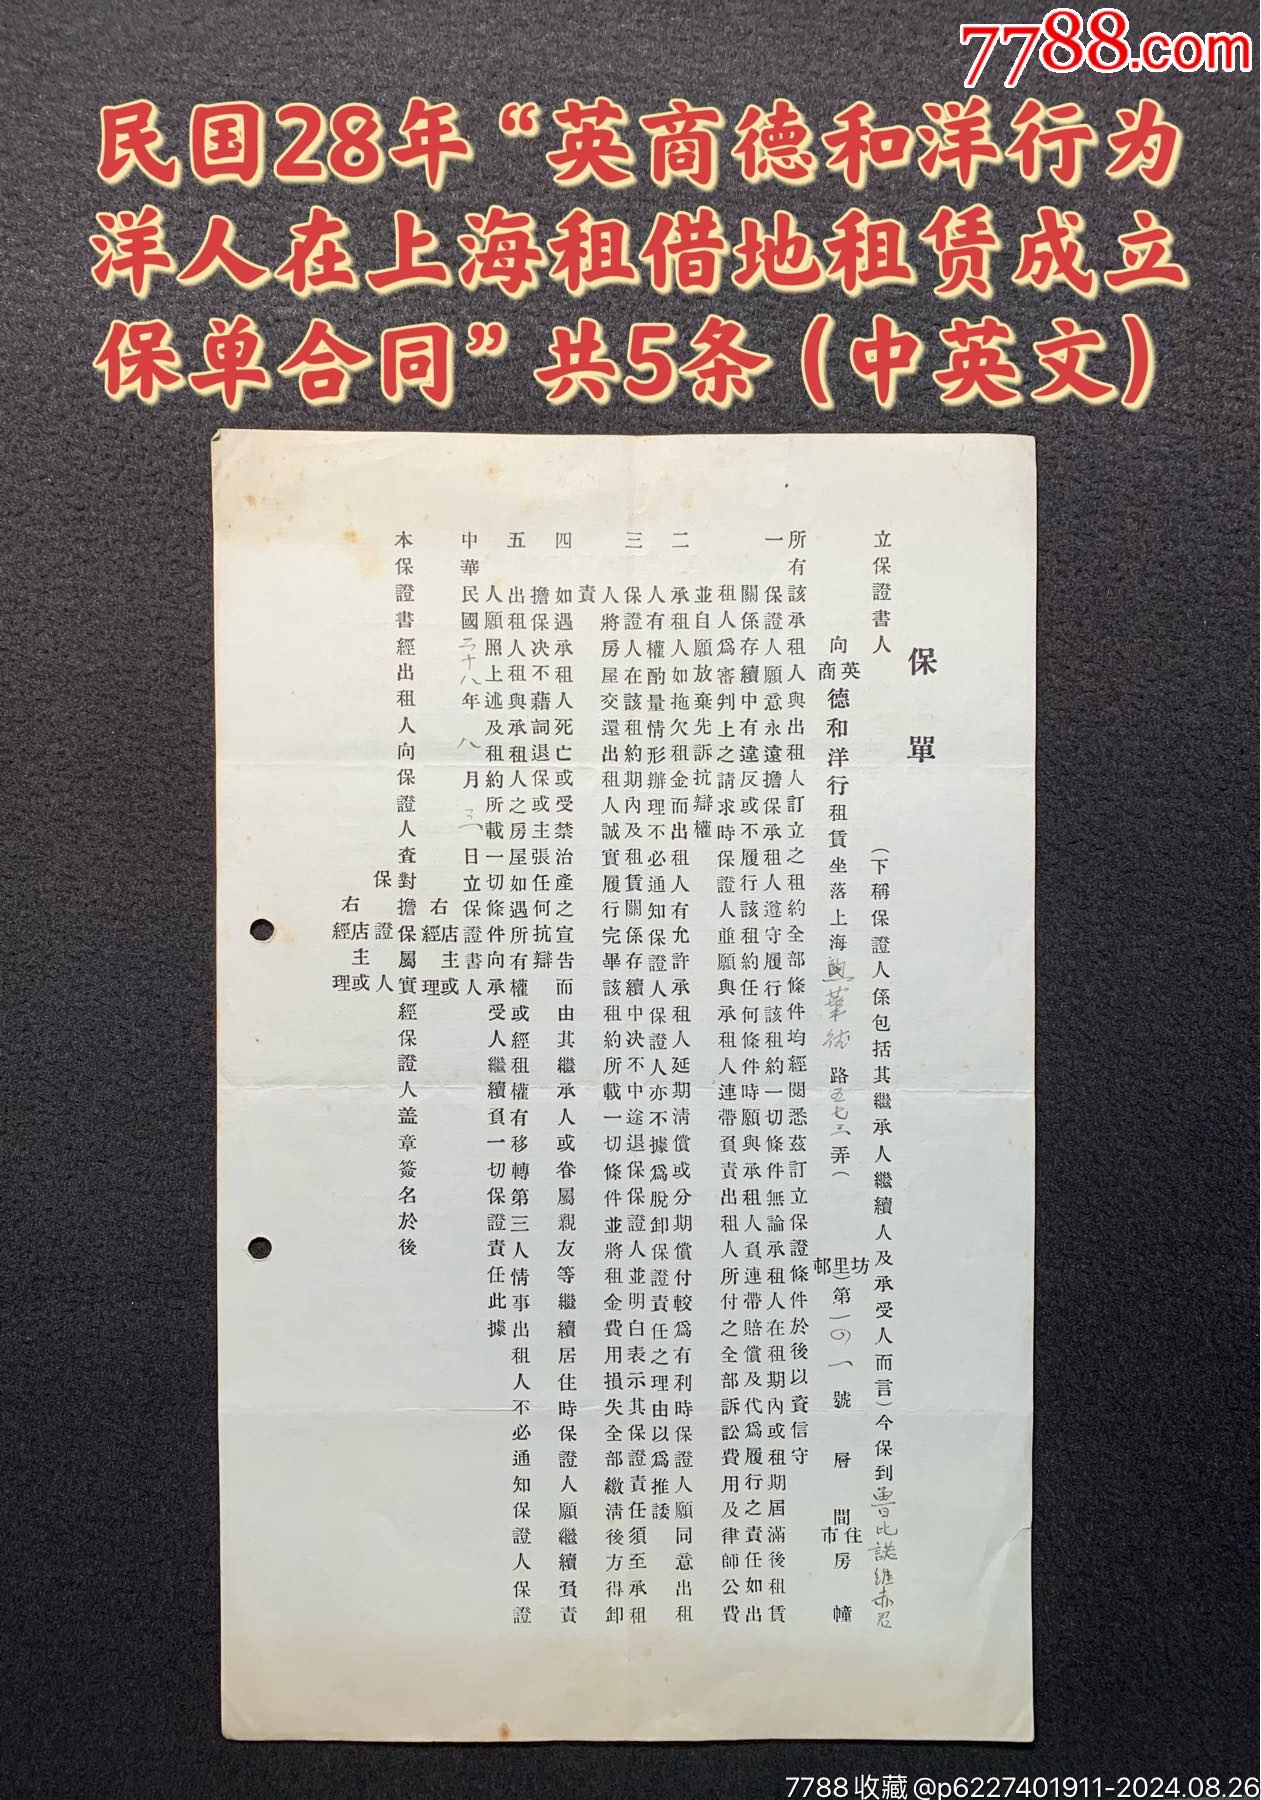 7788.com
民国28年“英商德和洋行为
洋人在上海租借地租赁成立
保单合同”共5条（中英文）
保單
立保證書人（下稱保證人係包括其繼承人繼續人及承受人而言）今保到魯比諾維赤君
向英商德和洋行租賃坐落上海 華德路五七三弄（坊里邨）第一〇一號 層 間住市房 幢
所有該承租人與出租人訂立之租約全部條件均經閱悉茲訂立保證條件於後以資信守
一 保證人願意永遠擔保承租人遵守履行該租約一切條件無論承租人在租期內或租期屆滿後租賃
關係存續中有違反或不履行該租約任何條件時願與承租人負連帶賠償及代為履行之責任如出
租人為審判上之請求時保證人並願與承租人連帶負責出租人所付之全部訴訟費用及律師公費
並自願放棄先訴抗辯權
二 承租人如拖欠租金而出租人有允許承租人延期清償或分期償付較為有利時保證人願同意出租
人有權酌量情形辦理不必通知保證人保證人亦不據為脫卸保證責任之理由以為推諉
三 保證人在該租約期內及租賃關係存續中決不中途退保保證人並明白表示其保證責任須至承租
人將房屋交還出租人誠實履行完畢該租約所載一切條件並將租金費用損失全部繳清後方得卸
責
四 如遇承租人死亡或受禁治產之宣告而由其繼承人或眷屬親友等繼續居住時保證人願繼續負責
擔保決不藉詞退保或主張任何抗辯
五 出租人租與承租人之房屋如遇所有權或經租權有移轉第三人情事出租人不必通知保證人保證
人願照上述及租約所載一切條件向承受人繼續負一切保證責任此據
中華民國二十八年八月 日立保證書人
右店主或經理
本保證書經出租人向保證人查對擔保屬實經保證人盖章簽名於後
保證人
右店主或經理
7788收藏@p6227401911-2024.08.26